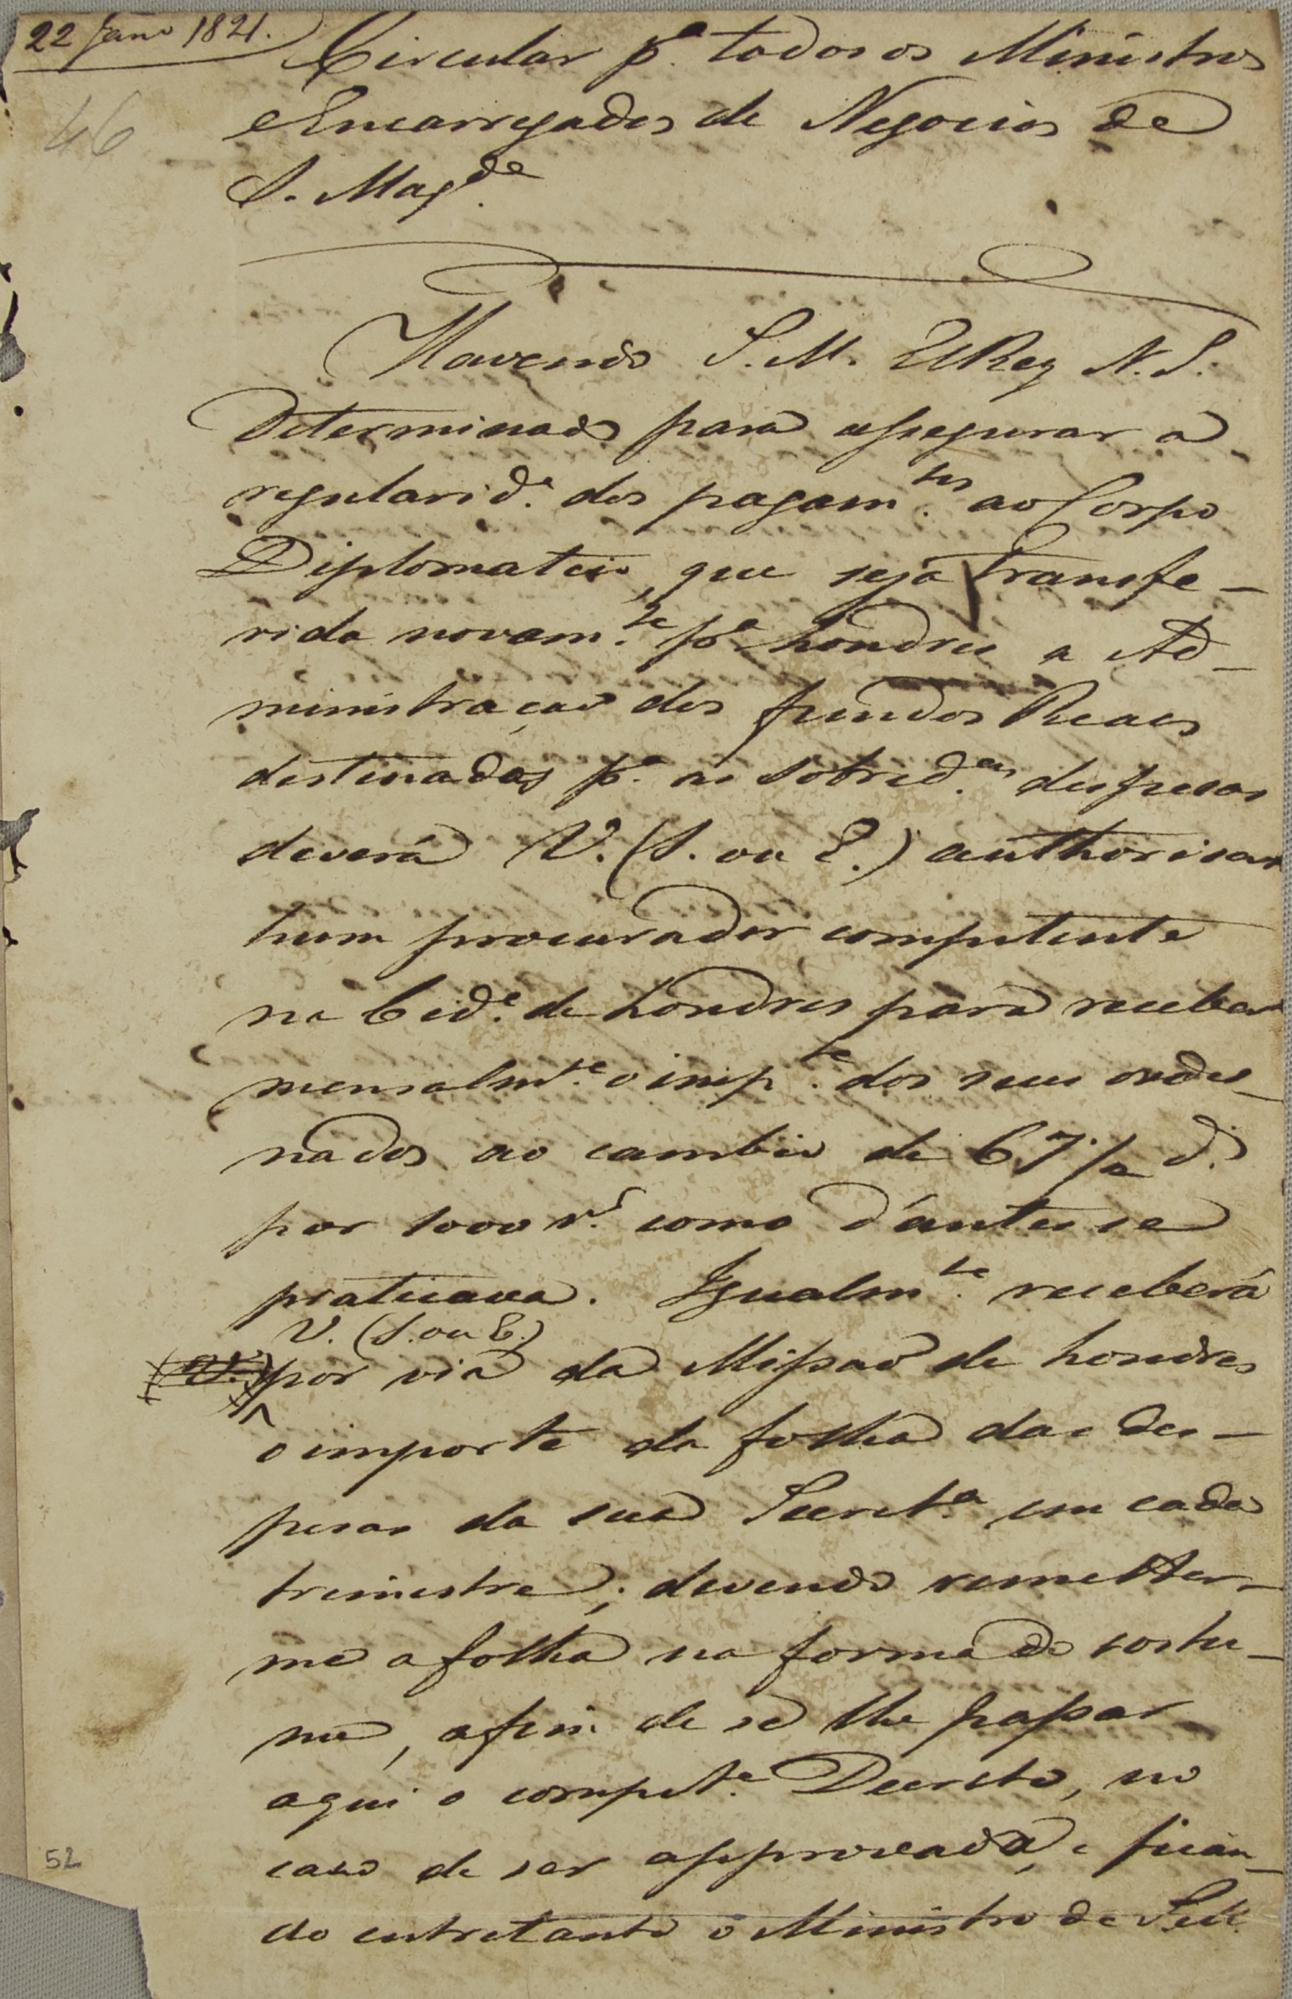 22 Jan.º 1821.
Circular p.ª todos os Ministros
e Encarregados de Negocios de
S. Mag.de
46
Havendo S. M. ElRey N. S.
Determinado para assegurar a
regularid.e dos pagam.tos ao Corpo
Diplomatico, que seja transfe-
rida novam.te p.ª Londres a Ad-
ministração dos fundos Reaes
destinados p.ª as sobred.as despesas
deverá V. (S. ou E.) authorisar
hum procurador competente
na Cid.e de Londres para receber
mensalm.te o imp.te dos seus orde-
nados ao cambio de 67 1/2 d.
por 1000 r.s como d'antes se
praticava. Igualm.te receberá
V. (S. ou E.)
por via da Missão de Londres
o importe da folha das des-
pesas da sua Secret.ª em cada
trimestre; devendo remetter-
me a folha na forma do costu-
me, afim de se lhe passar
aqui o compet.e Decreto, no
caso de ser approvada, e fican-
do entretanto o Ministro de S. M.
52